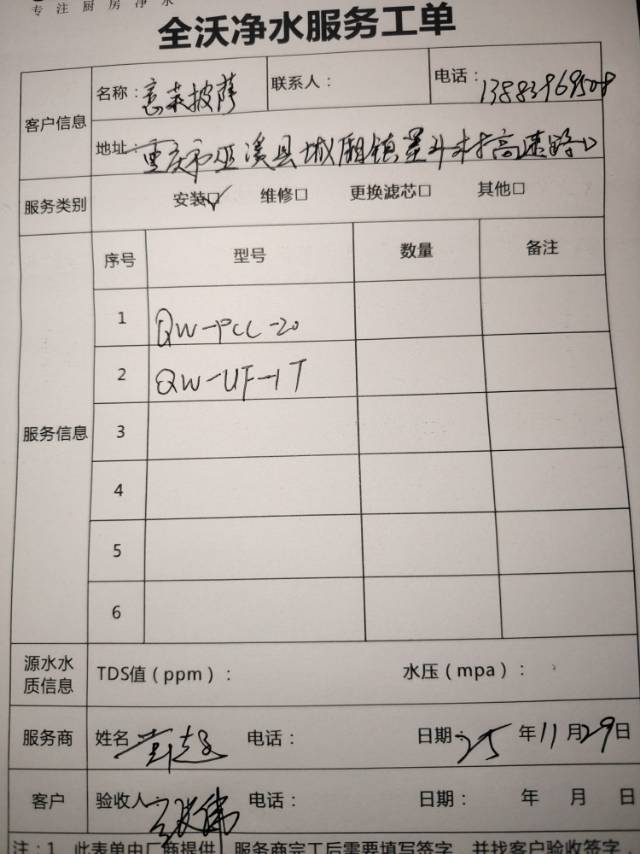 专注厨房净水
全沃净水服务工单
客户信息 名称: 意莱披萨 联系人: 电话: 13883969508
地址: 重庆市巫溪县城厢镇 高速路口
服务类别 安装☑ 维修□ 更换滤芯□ 其他□
服务信息 序号 型号 数量 备注
1 QW-PCC-20
2 QW-UF-1T
3
4
5
6
源水水质信息 TDS值(ppm): 水压(mpa):
服务商 姓名 电话: 日期: 25 年 11 月 29 日
客户 验收人: 电话: 日期: 年 月 日
注:1、此表单由厂商提供,服务商完工后需要填写签字,并找客户验收签字,